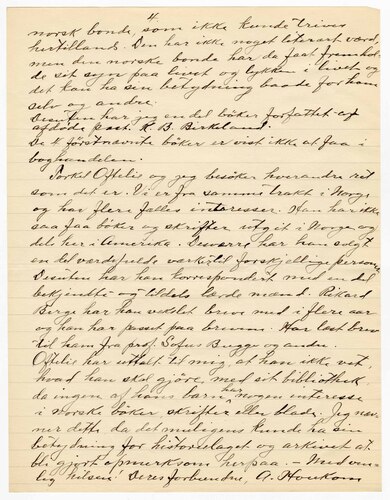 4.
norsk bonde, som ikke kunde trives
hertillands. Den har ikke noget literært værd,
men den norske bonde har da faat fremhol-
de sit syn paa livet og lykken i livet og
det kan ha sen betydning baade for ham
selv og andre.
Desuten har jeg en del bøker forfattet av
afdøde past. K. B. Birkeland.
De 4 førstnævnte bøker er vist ikke at faa i
boghandelen.
Torkel Oftelie og jeg besøker hverandre ret
som det er. Vi er fra samme trakt i Norge
og har flere fælles interesser. Han har ikke
saa faa bøker og skrifter utgit i Norge og
dels her i Amerika. Desværre har han solgt
en del værdifulde verk til forskjellige personer
Desuten har han korrespondert med en del
bekjendte og tildels lærde mænd. Rikard
Berge har han vekslet breve med i flere aar
og han har passet paa brevene. Han læst brev
til ham fra prof. Sofus Bugge og andre.
Oftelie har uttalt til mig at han ikke vet,
hvad han skal gjøre med sit bibliothek,
da ingen af hans barn har nogen interesse
i norske bøker skrifter eller blade. Jeg næv-
ner dette da det muligens kunde ha sen
betydning for historielaget og arkivet at
bli gjort opmerksom herpaa. - Med venn-
lig hilsen! Deres forbundne, A. Houkom